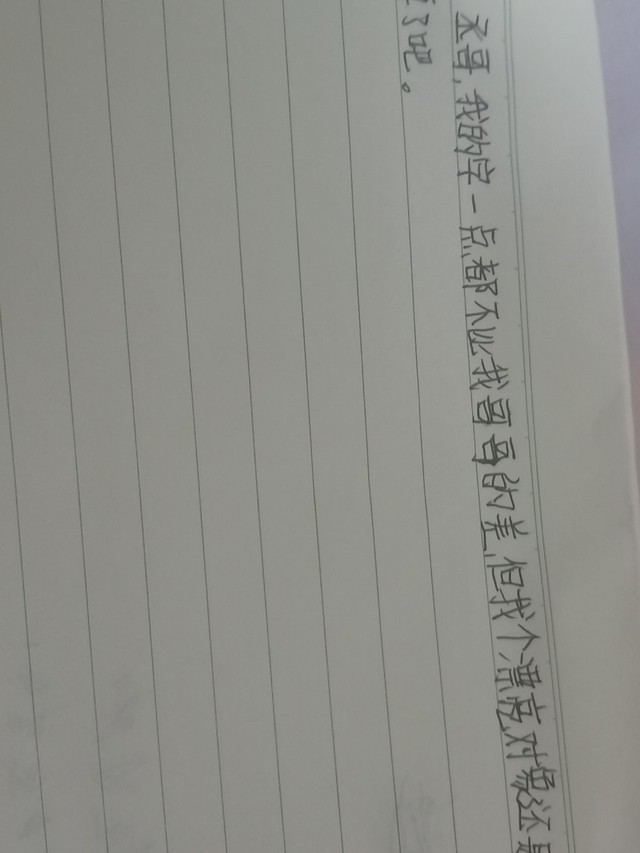 丞哥,我的字一点都不比我哥哥的差,但找个漂亮对象还是
了吧。